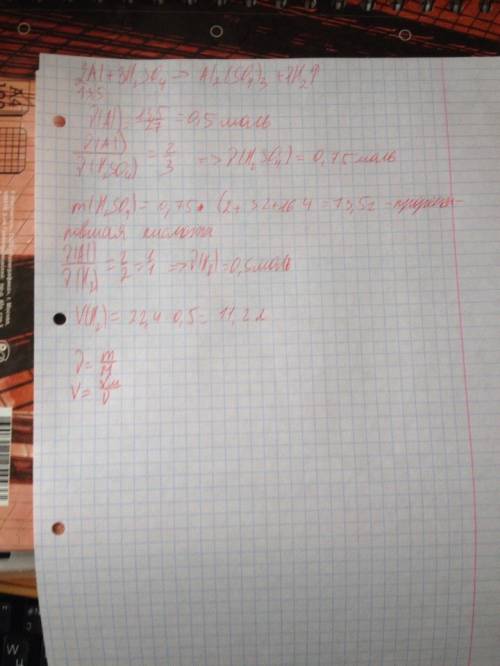 2Al+3H₂SO₄ => Al₂(SO₄)₃ + 2H₂↑
13,5
ν(Al) = 13,5/27 = 0,5 моль
ν(Al)/ν(H₂SO₄) = 2/3 => ν(H₂SO₄) = 0,75 моль
m(H₂SO₄) = 0,75 · (2+32+16·4 = 73,5г -
кислота
ν(Al)/ν(H₂) = 2/2 = 1/1 => ν(H₂) = 0,5 моль
V(H₂) = 22,4·0,5 = 11,2 л
ν = m/M
V = Vm/ν
A4
W